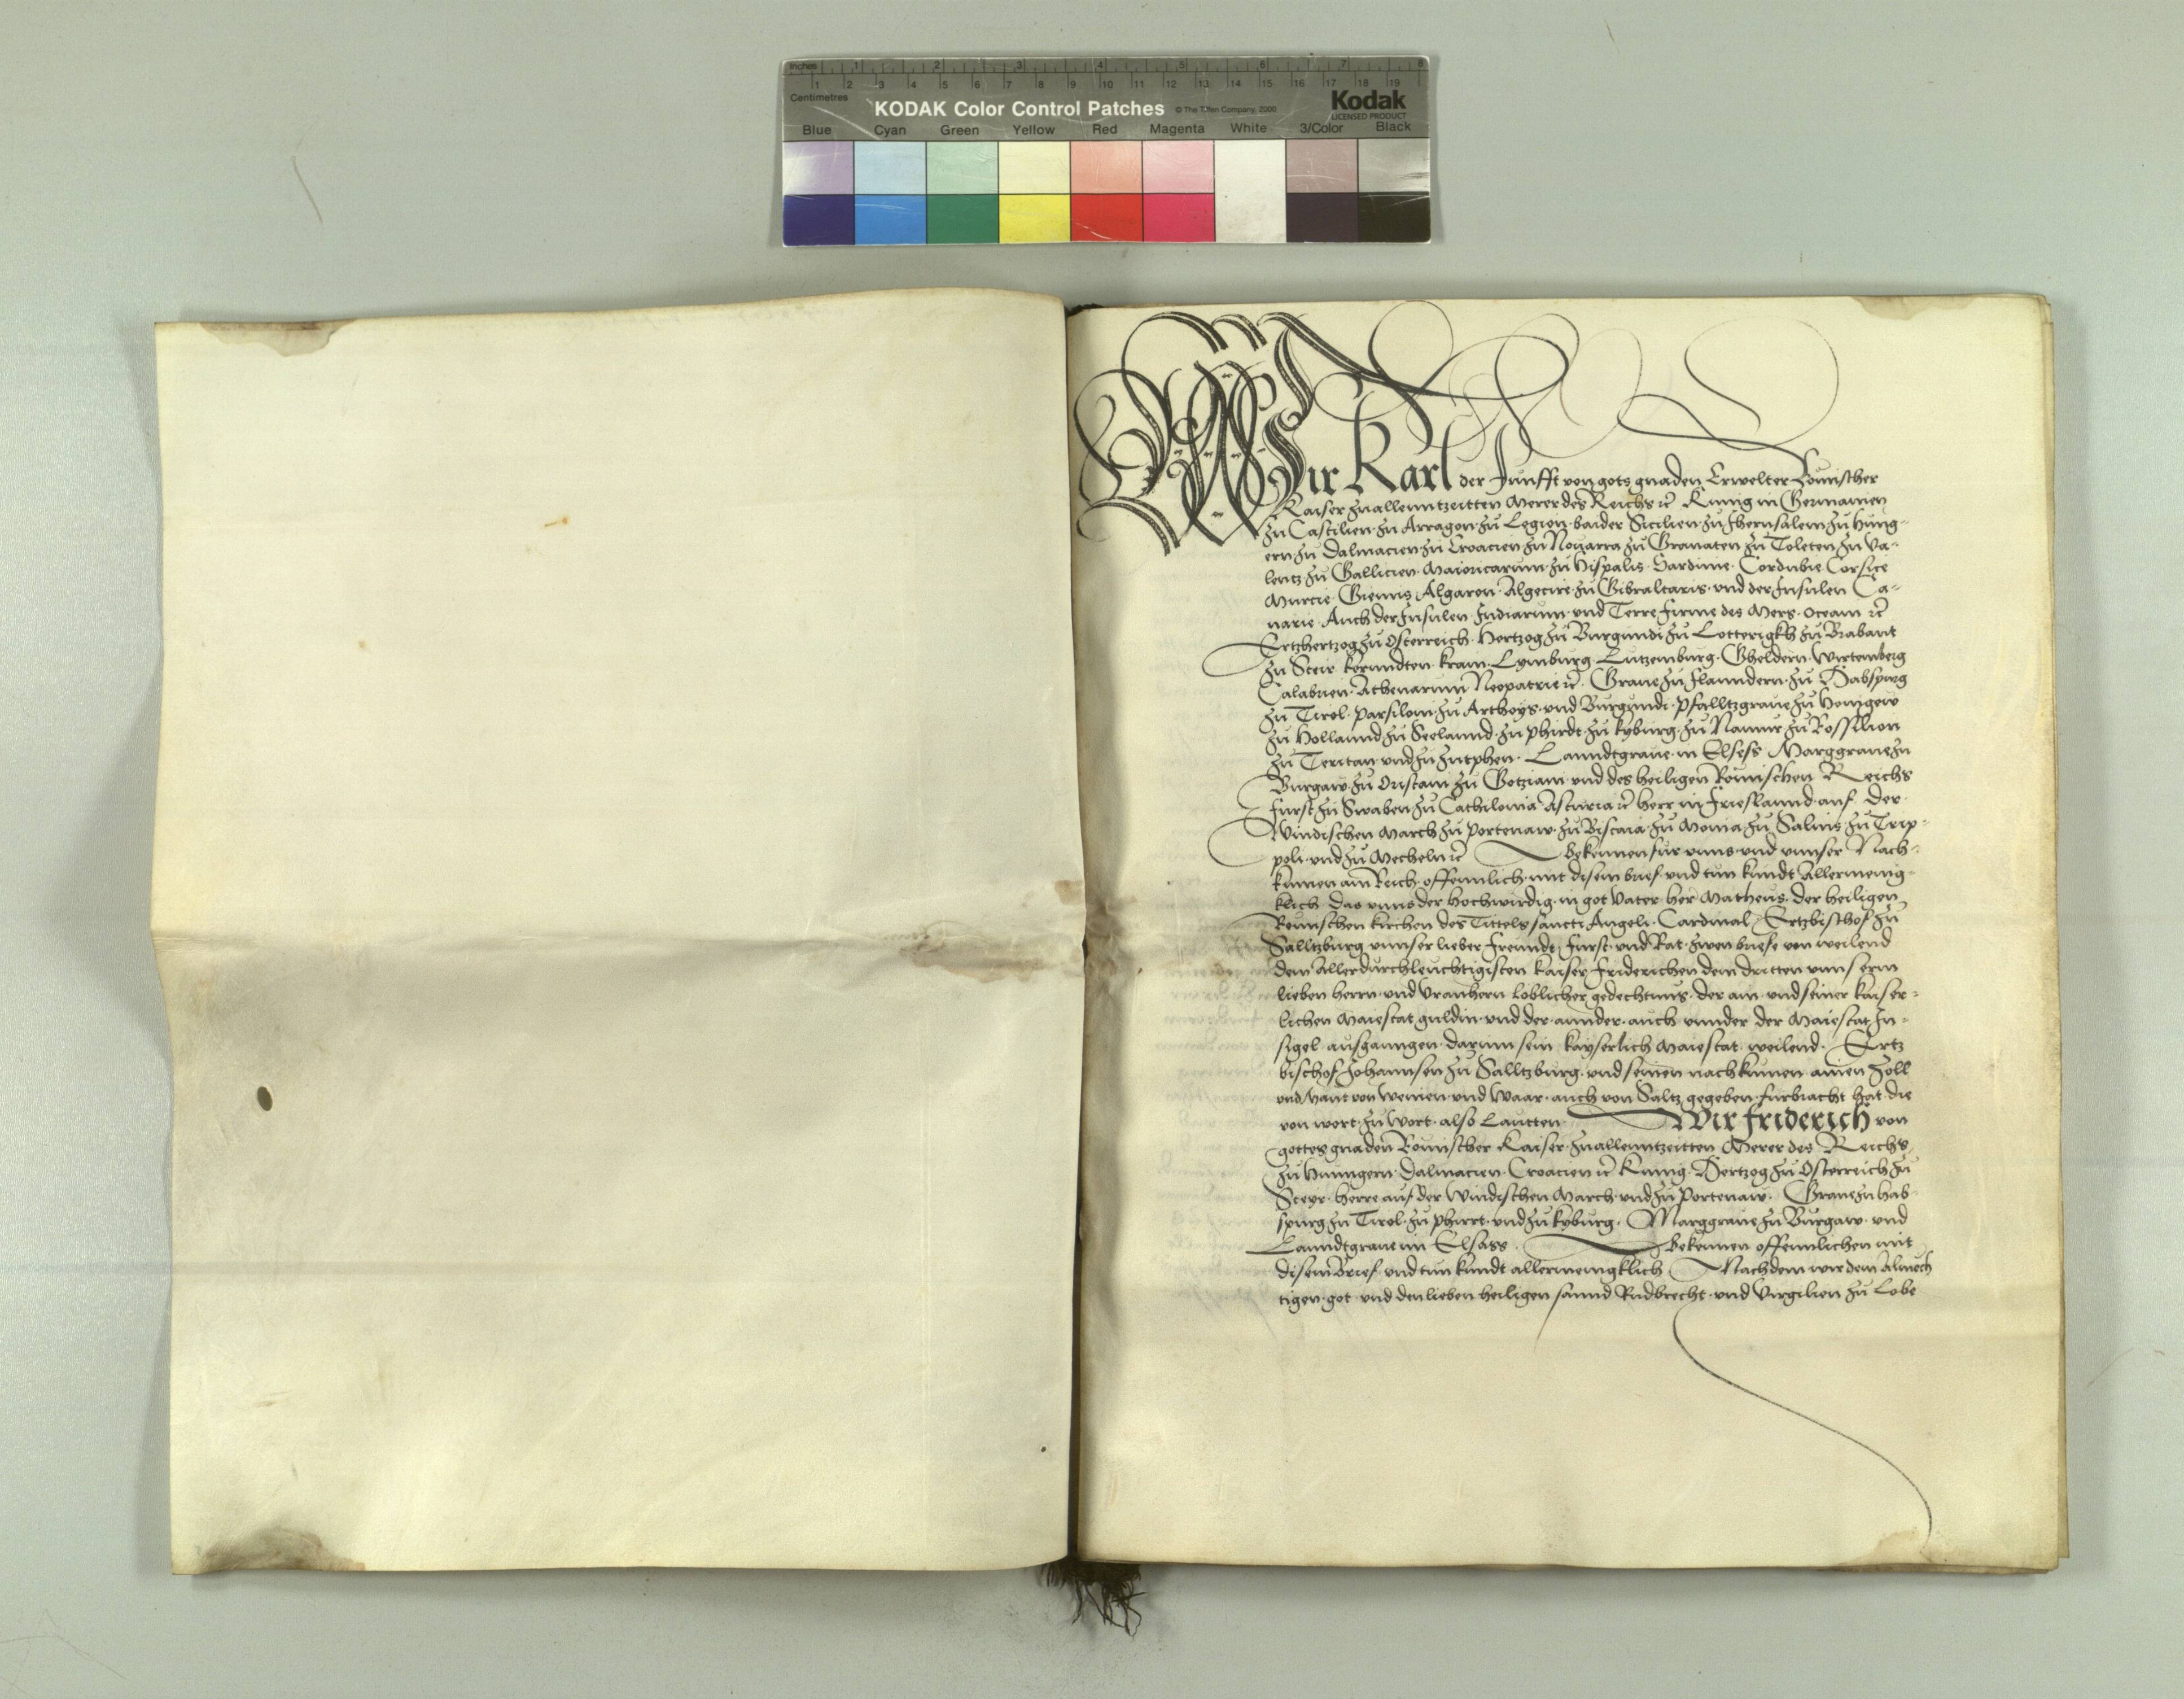 Inches 1 2 3 4 5 6 7 8
1 2 3 4 5 6 7 8 9 10 11 12 13 14 15 16 17 18 19
Centimetres
KODAK Color Control Patches © The Tiffen Company, 2000 Kodak
LICENSED PRODUCT
Blue Cyan Green Yellow Red Magenta White 3/Color Black
Wir Karl der Funfft von gots gnaden Erwelter Romischer
Kaiser zu allenntzeitten Merer des Reichs ꝛc Kunig in Germanien
zu Castilien zu Arragon zu Legion baider Sicilien zu Jherusalem zu Hung-
ern zu Dalmacien zu Croacien zu Nouarra zu Granaten zu Toleten zu Va-
lentz zu Gallicien Maioricarum zu Hispalis Sardinie Cordubie Corsice
Murcie Giennis Algaron Algecire zu Gibraltaris und der Insulen Ca-
narie Auch der Insulen Indiarum und Terre firme des Mers Oceani ꝛc
Ertzhertzog zu Osterreich Hertzog zu Burgundi zu Lotterigkh zu Brabant
zu Steir kerndten Krain Lymburg Lutzemburg Gheldern Wirtemberg
Calabrien Athenarum Neopatrie ꝛc Graue zu Flanndern zu Habspurg
zu Tirol Parsiloni zu Arthoys und Burgundi Pfalltzgraue zu Henigew
zu Hollannd zu Seelannd zu Phirdt zu Kyburg zu Namur zu Rossilion
zu Teritan und zu Zutphen Lanndtgraue in Elsess Marggraue zu
Burgaw zu Oristani zu Gotziani und des heiligen Romischen Reichs
Furst zu Swaben zu Cathilonia Asturia ꝛc herr in Frieslannd auf der
Windischen March zu Portenaw zu Biscaia zu Monia zu Salins zu Trip-
poli und zu Mecheln ꝛc Bekennen fur unns und unnser Nach-
kumen am Reich offennlich mit disem brief und tun kundt Allermenig-
klich das unns der Hochwirdig in got Vater her Matheus der heiligen
Romischen kirchen des Tittels sancti Angeli Cardinal Ertzbischof zu
Salltzburg unnser lieber freundt furst und Rat zwen briefe von weilend
dem Allerdurchleuchtigisten kaiser Friderichen dem dritten unnserm
lieben herrn und Uranhern loblicher gedechtnus der ain und seiner kaiser-
lichen Maiestat guldin und der annder auch unnder der Maiestat In-
sigel ausganngen darinn sein kayserlich Maiestat weilend Ertz
bischof Johannsen zu Salltzburg und seinen nachkumen ainen Zoll
und Maut von Weinen und Waar auch von Saltz gegeben furbracht hat die
von wort zu wort also Lautten Wir Friderich von
gottes gnaden Romischer Kaiser zu allenntzeitten Merer des Reichs
zu Hungern Dalmacien Croacien ꝛc Kunig Hertzog zu Osterreich zu
Steyr herre auf der Windischen March und zu Portenaw Graue zu Hab
spurg zu Tirol zu Phirrt und zu Kyburg Marggraue zu Burgaw und
Lanndtgraue im Elsass Bekennen offennlichen mit
disem Brief und tun kundt allermenigklich Nachdem wir dem Almech
tigen got und den lieben heiligen sannd Rudbrecht und Virgilien zu Lobe